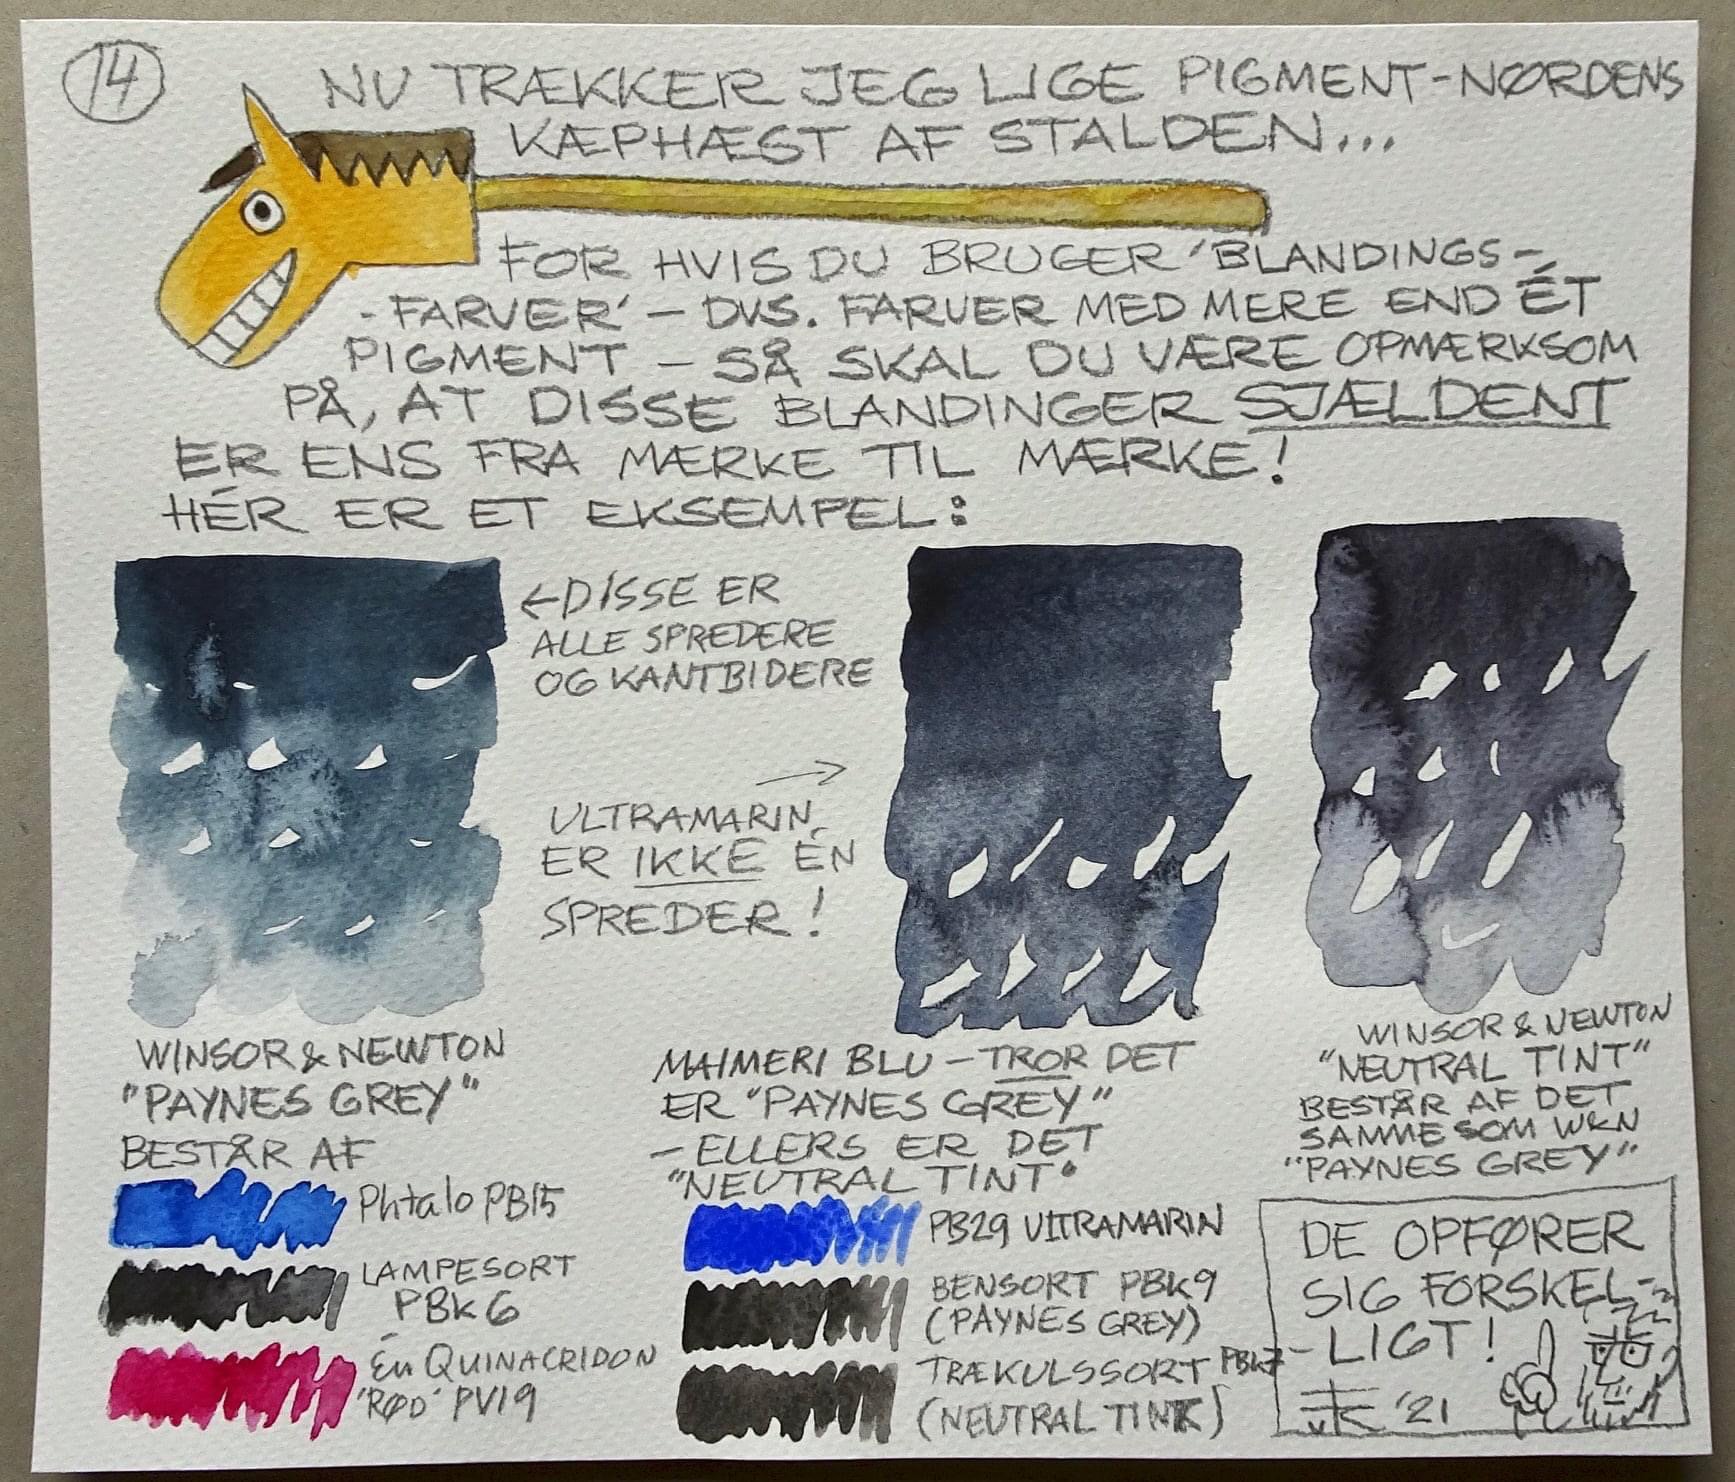 14
NU TRÆKKER JEG LIGE PIGMENT-NØRDENS
KÆPHÆST AF STALDEN...
FOR HVIS DU BRUGER 'BLANDINGS-
-FARVER' - DVS. FARVER MED MERE END ÉT
PIGMENT - SÅ SKAL DU VÆRE OPMÆRKSOM
PÅ, AT DISSE BLANDINGER SJÆLDENT
ER ENS FRA MÆRKE TIL MÆRKE!
HÉR ER ET EKSEMPEL:
←DISSE ER
ALLE SPREDERE
OG KANTBIDERE
→
ULTRAMARIN
ER IKKE ÉN
SPREDER!
WINSOR & NEWTON
"PAYNES GREY"
BESTÅR AF
Phtalo PB15
LAMPESORT
PBk6
Én QUINACRIDON
'RØD' PV19
MAIMERI BLU - TROR DET
ER "PAYNES GREY"
- ELLERS ER DET
"NEUTRAL TINT"
PB29 ULTRAMARIN
BENSORT PBk9
(PAYNES GREY)
TRÆKULSSORT PBk7
(NEUTRAL TINT)
WINSOR & NEWTON
"NEUTRAL TINT"
BESTÅR AF DET
SAMME SOM W&N
"PAYNES GREY"
DE OPFØRER
SIG FORSKEL-
-LIGT!
'21